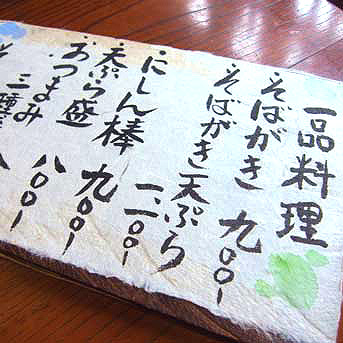 一品料理
そばがき 九〇〇-
そばがき天ぷら
にしん棒 一二〇〇-
天ぷら盛 九〇〇-
おつまみ三種 八〇〇-
そ 八